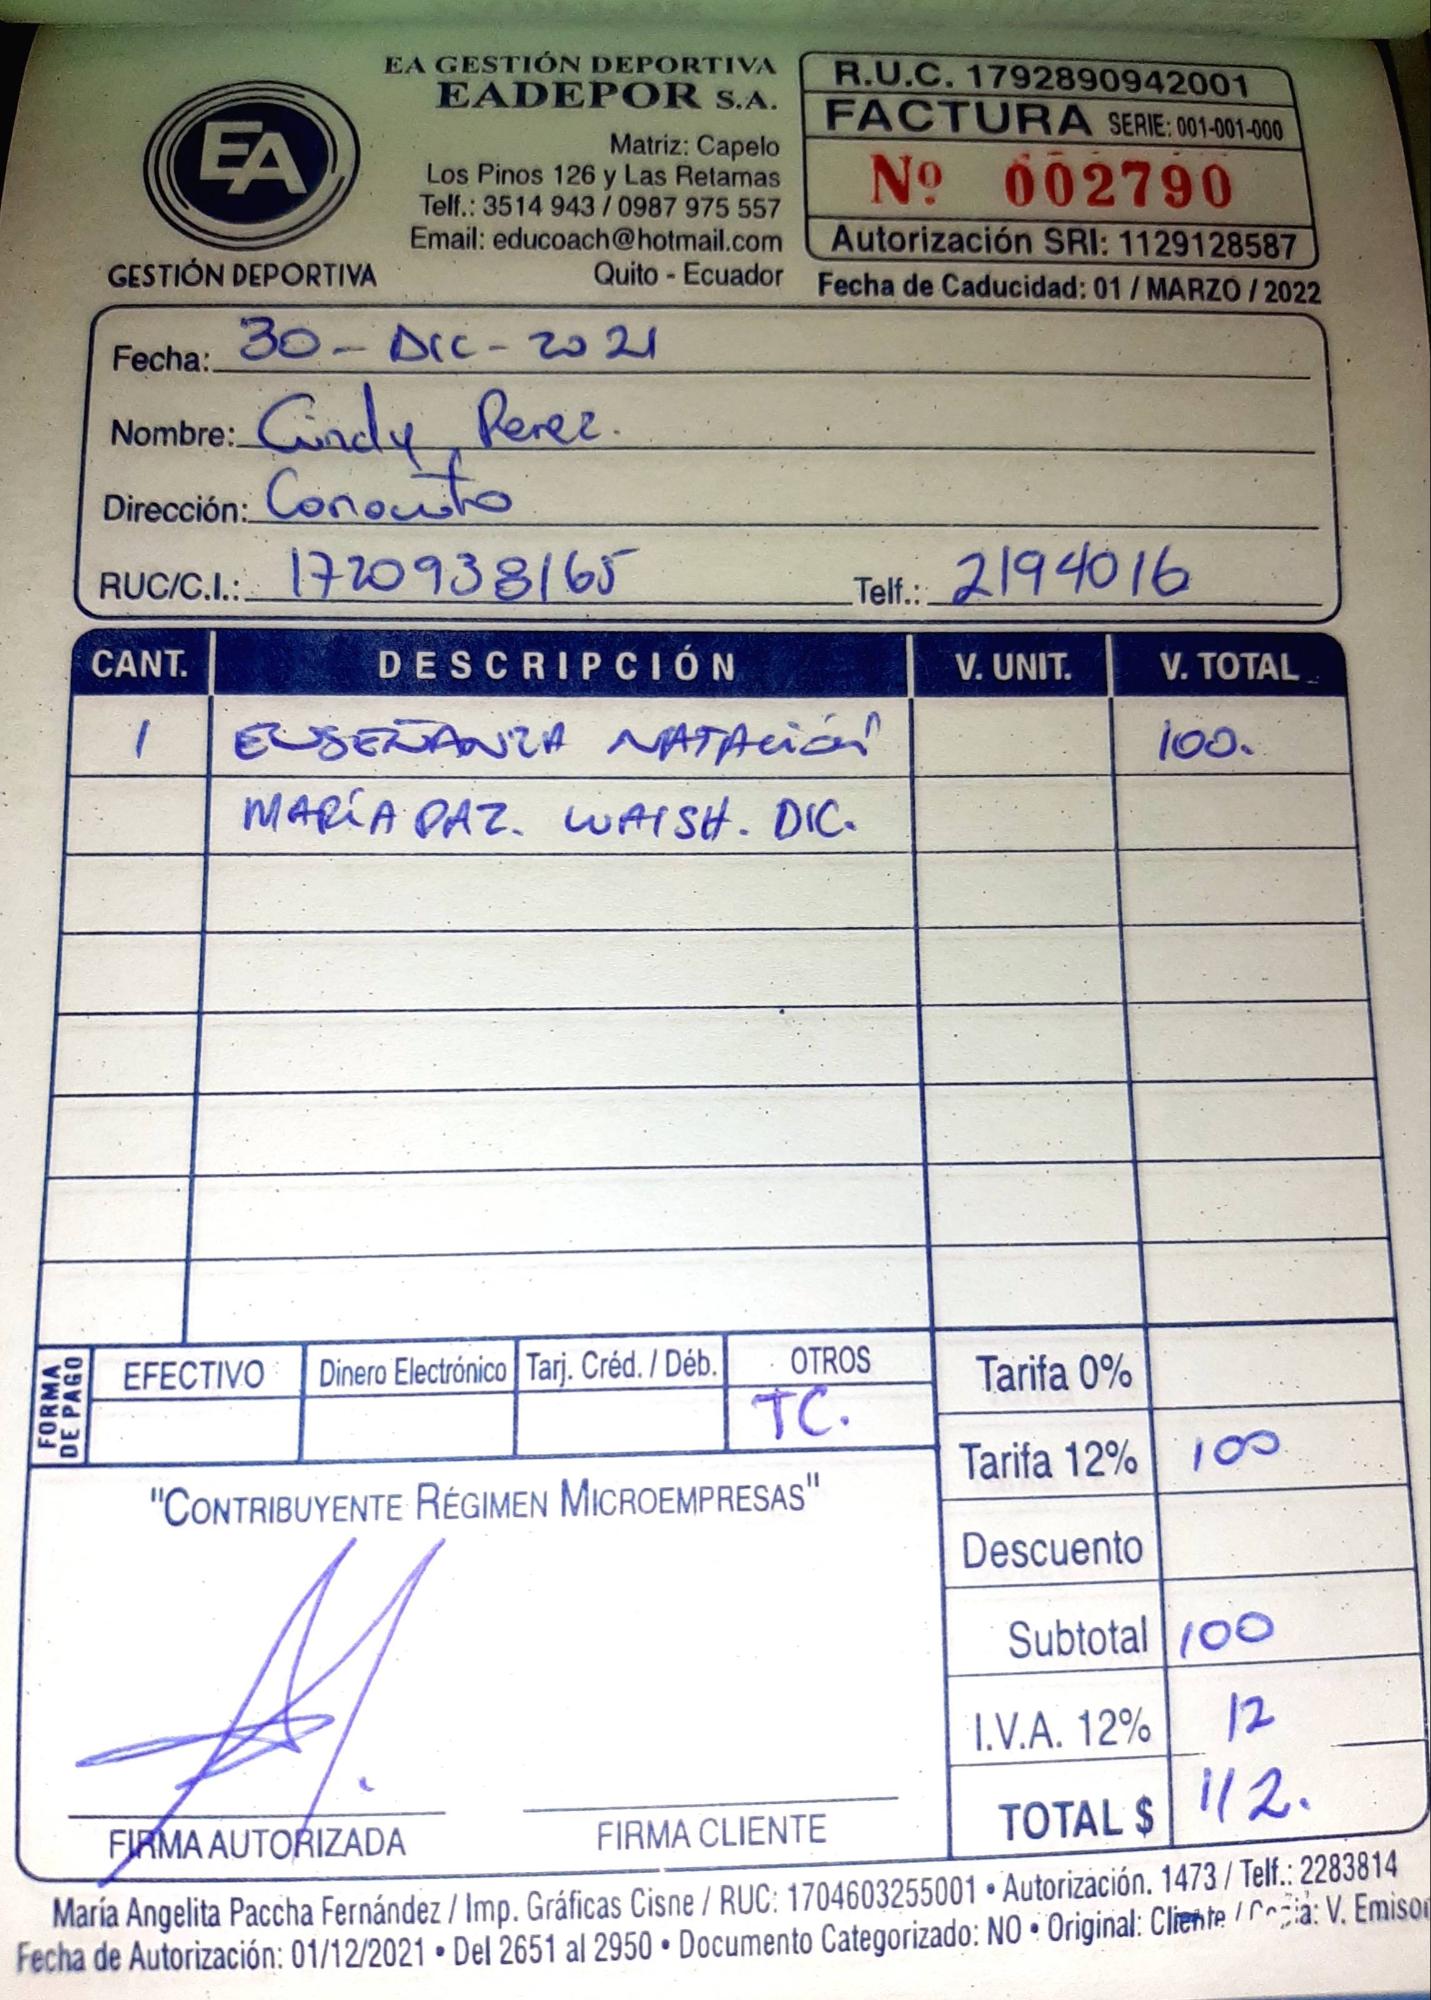 EA GESTIÓN DEPORTIVA
EADEPOR S.A.
Matriz: Capelo
Los Pinos 126 y Las Retamas
Telf.: 3514 943 / 0987 975 557
Email: educoach@hotmail.com
Quito - Ecuador
EA
GESTIÓN DEPORTIVA
R.U.C. 1792890942001
FACTURA SERIE: 001-001-000
Nº 002790
Autorización SRI: 1129128587
Fecha de Caducidad: 01 / MARZO / 2022
Fecha: 30 - DIC - 2021
Nombre: Cindy Perez.
Dirección: Conocoto
RUC/C.I.: 1720938165 Telf.: 2194016
CANT. DESCRIPCIÓN V. UNIT. V. TOTAL
1 ENSEÑANZA NATACIÓN 100.
MARÍA PAZ. WALSH. DIC.
FORMA DE PAGO
EFECTIVO Dinero Electrónico Tarj. Créd. / Déb. OTROS
TC.
Tarifa 0%
Tarifa 12% 100
Descuento
Subtotal 100
I.V.A. 12% 12
TOTAL $ 112.
"CONTRIBUYENTE RÉGIMEN MICROEMPRESAS"
FIRMA AUTORIZADA FIRMA CLIENTE
María Angelita Paccha Fernández / Imp. Gráficas Cisne / RUC: 1704603255001 • Autorización. 1473 / Telf.: 2283814
Fecha de Autorización: 01/12/2021 • Del 2651 al 2950 • Documento Categorizado: NO • Original: Cliente / Copia: V. Emisor